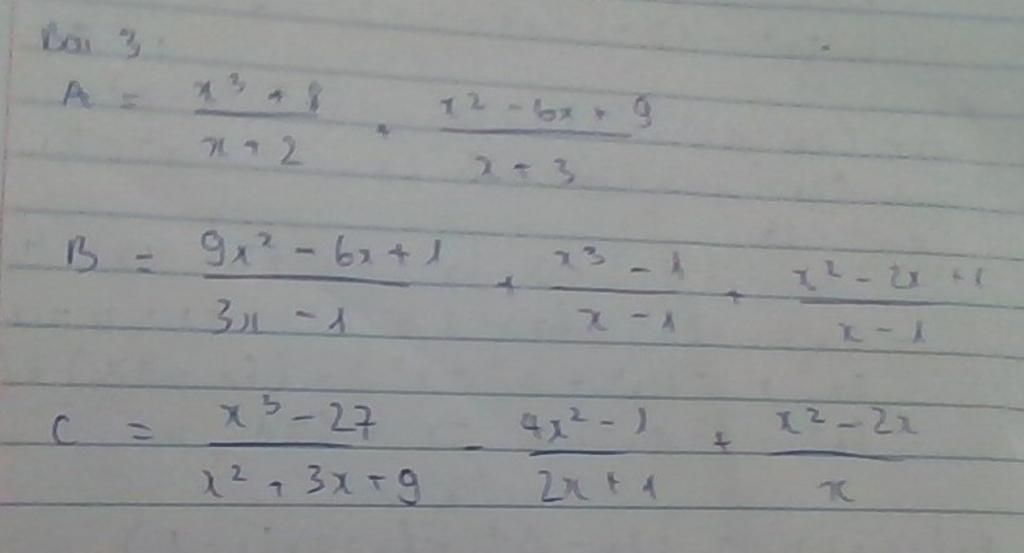 Bài 3
A = \frac{x^3 + 8}{x + 2} + \frac{x^2 - 6x + 9}{x - 3}
B = \frac{9x^2 - 6x + 1}{3x - 1} + \frac{x^3 - 1}{x - 1} + \frac{x^2 - 2x + 1}{x - 1}
C = \frac{x^3 - 27}{x^2 + 3x + 9} - \frac{4x^2 - 1}{2x + 1} + \frac{x^2 - 2x}{x}